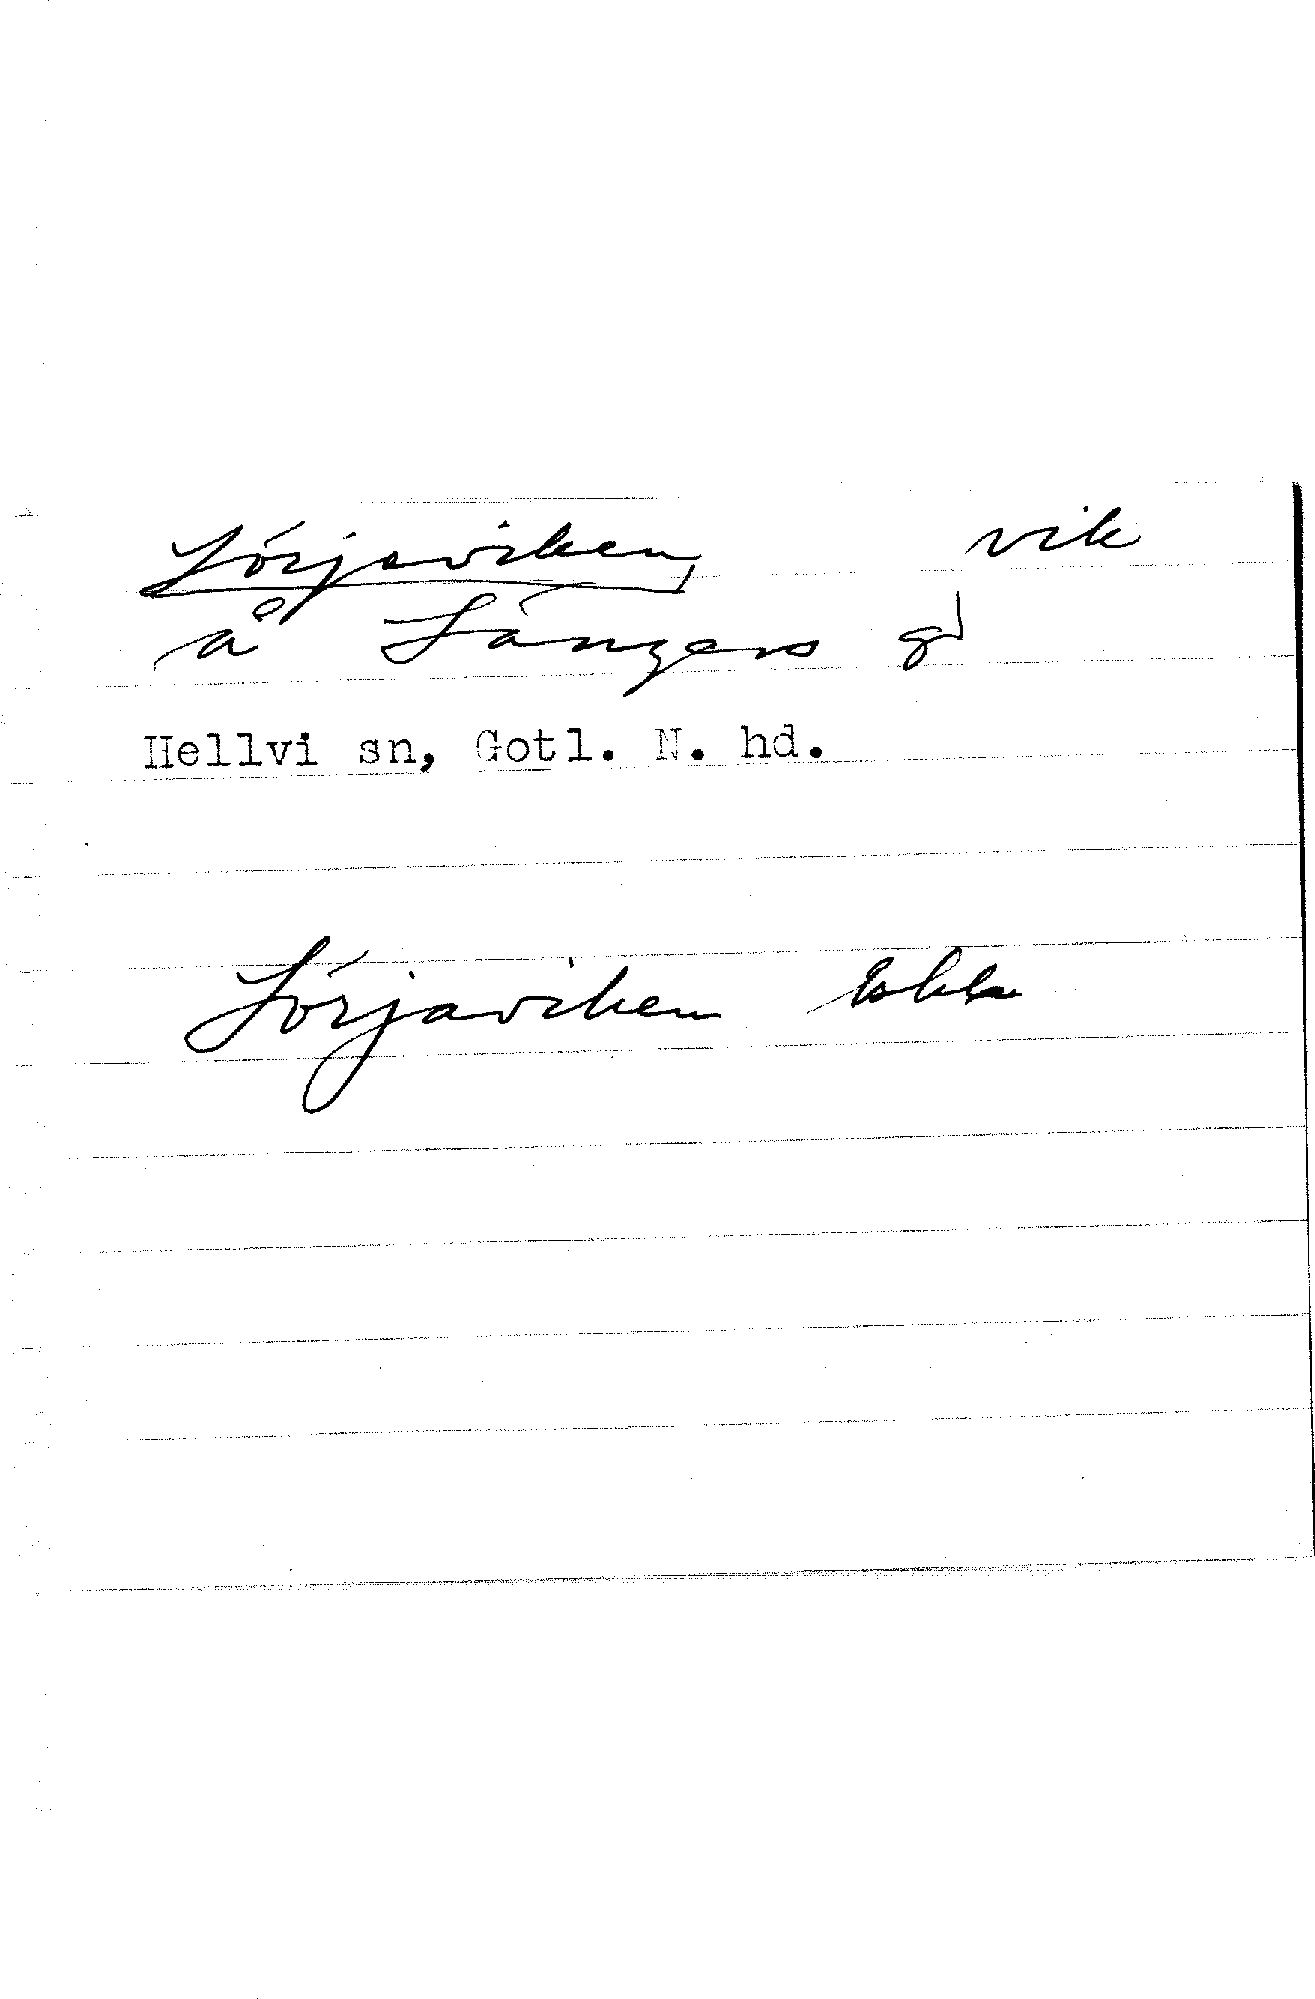 Lörjaviken vik
å Längers gd
Hellvi sn, Gotl. N. hd.
Lörjaviken